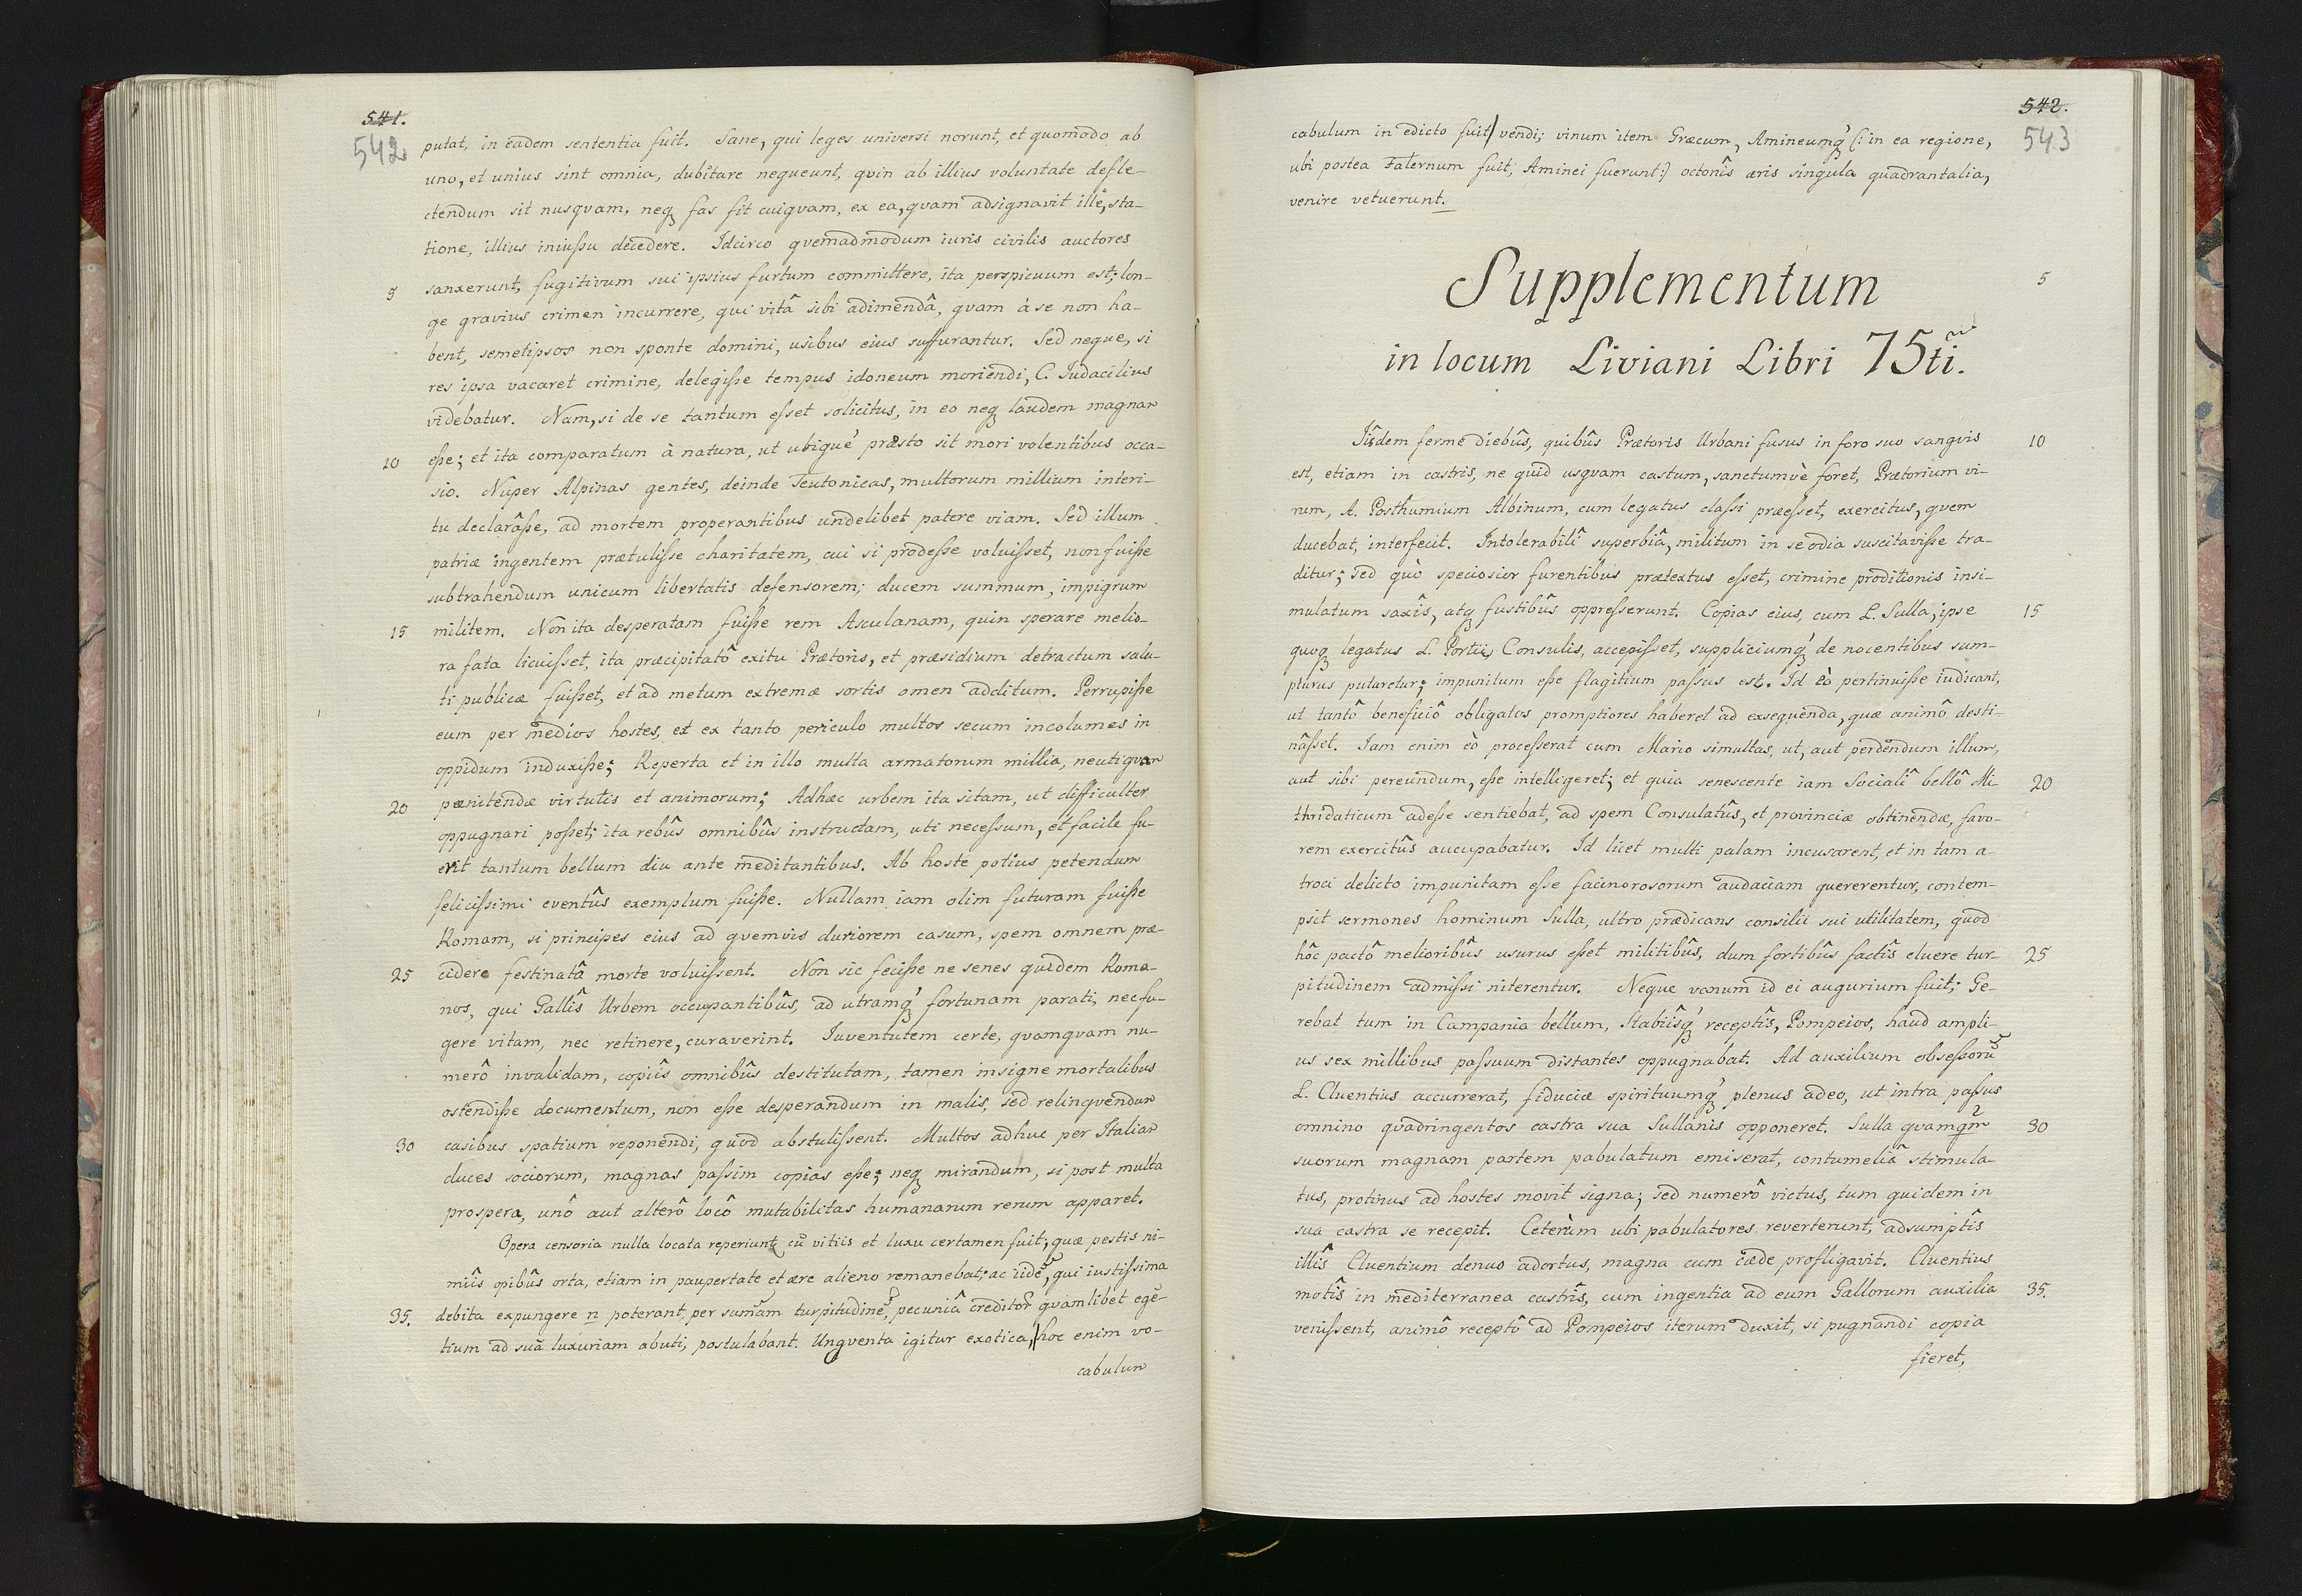 541.
542
putat, in eadem sententia fuit. Sane, qui leges universi norunt, et quomodo ab
uno, et unius sint omnia, dubitare nequeunt, quin ab illius voluntate defle-
ctendum sit nusquam, neq fas sit cuiquam, ex ea, quam adsignavit ille, sta-
tione, illius iniussu decedere. Idcirco quemadmodum iuris civilis auctores
5 sanxerunt, fugitivum sui ipsius furtum committere, ita perspicuum est; lon-
ge gravius crimen incurrere, qui vitâ sibi adimendâ, quam à se non ha-
bent, semetipsos non sponte domini, usibus eius suffurantur. Sed neque, si
res ipsa vacaret crimine, delegisse tempus idoneum moriendi, C. Iudacilius
videbatur. Nam, si de se tantum esset solicitus, in eo neq laudem magnam
10 esse; et ita comparatum à natura, ut ubique præsto sit mori volentibus occa-
sio. Nuper Alpinas gentes, deinde Teutonicas, multorum millium interi-
tu declarâsse, ad mortem properantibus undelibet patere viam. Sed illum
patriæ ingentem prætulisse charitatem, cui si prodesse voluisset, non fuisse
subtrahendum unicum libertatis defensorem; ducem summum, impigrum
15 militem. Non ita desperatam fuisse rem Asculanam, quin sperare melio-
ra fata licuisset, ita præcipitatô exitu Prætoris, et præsidium detractum salu-
ti publicæ fuisset, et ad metum extremæ sortis omen additum. Perrupisse
eum per medios hostes, et ex tanto periculo multos secum incolumes in
oppidum induxisse; Reperta et in illo multa armatorum millia, neutiquam
20 pænitendæ virtutis et animorum; Adhæc urbem ita sitam, ut difficulter
oppugnari posset; ita rebûs omnibûs instructam, uti necessum, et facile fu-
erit tantum bellum diu ante meditantibus. Ab hoste potius petendum
felicissimi eventûs exemplum fuisse. Nullam iam olim futuram fuisse
Romam, si principes eius ad quemvis duriorem casum, spem omnem præ-
25 cidere festinatâ morte voluissent. Non sic fecisse ne senes quidem Roma-
nos, qui Gallîs Urbem occupantibûs, ad utramq' fortunam parati, nec fu-
gere vitam, nec retinere, curaverint. Iuventutem certe, quamquam nu-
merô invalidam, copiîs omnibûs destitutam, tamen insigne mortalibus
ostendisse documentum, non esse desperandum in malis, sed relinquendum
30 casibus spatium reponendi, quod abstulissent. Multos adhuc per Italiam
duces sociorum, magnas passim copias esse; neq mirandum, si post multa
prospera, unô aut alterô locô mutabilitas humanarum rerum apparet.
Opera censoria nulla locata reperiunt; cũ vitiis et luxu certamen fuit; quæ pestis ni-
miîs opibûs orta, etiam in paupertate et ære alieno remanebat; ac iidẽ, qui iustissima
35. debita expungere n poterant, per sumam turpitudinẽ, pecuniâ creditor quamlibet egẽ-
tium ad suã luxuriam abuti, postulabant. Unguenta igitur exotica, hoc enim vo-
cabulum
542.
543
cabulum in edicto fuit vendi; vinum item Græcum, Amineumq' (: in ea regione,
ubi postea Falernum fuit, Aminei fuerunt:) octonîs æris singula quadrantalia,
venire vetuerunt.
Supplementum 5
in locum Liviani Libri 75ti.
Iîsdem ferme diebûs, quibûs Prætoris Urbani fusus in foro suo sanguis 10
est, etiam in castris, ne quid usquam castum, sanctumvè foret, Prætorium vi-
rum, A. Posthumium Albinum, cum legatus classi præesset, exercitus, quem
ducebat, interfecit. Intolerabilî superbiâ, militum in se odia suscitavisse tra-
ditur; sed quò speciosior furentibus prætextus esset, crimine proditionis insi-
mulatum saxîs, atq fustibûs oppresserunt. Copias eius, cum L. Sulla, ipse 15
quoq legatus L. Portii Consulis, accepisset, suppliciumq' de nocentibus sum-
pturus putaretur; impunitum esse flagitium passus est. Id eò pertinuisse iudicant,
ut tantô beneficiô obligatos promptiores haberet ad exsequenda, quæ animô desti-
nâsset. Iam enim eò processerat cum Mario simultas, ut, aut perdendum illum,
aut sibi pereundum, esse intelligeret; et quia senescente iam Socialî bellô Mi- 20
thridaticum adesse sentiebat, ad spem Consulatûs, et provinciæ obtinendæ, favo-
rem exercitûs aucupabatur. Id licet multi palam incusarent, et in tam a-
troci delicto impunitam esse facinorosorum audaciam quererentur, contem-
psit sermones hominum Sulla, ultro prædicans consilii sui utilitatem, quod
hôc pactô melioribûs usurus esset militibûs, dum fortibûs factîs eluere tur- 25
pitudinem admissi niterentur. Neque vanum id ei augurium fuit; Ge-
rebat tum in Campania bellum, Stabiîsq' receptîs, Pompeios, haud ampli-
us sex millibus passuum distantes oppugnabat. Ad auxilium obsessorũ
L. Cluentius accurrerat, fiduciæ spirituumq' plenus adeo, ut intra passus
omnino quadringentos castra sua Sullanis opponeret. Sulla quamqm 30
suorum magnam partem pabulatum emiserat, contumeliâ stimula-
tus, protinus ad hostes movit signa; sed numerô victus, tum quidem in
sua castra se recepit. Ceterùm ubi pabulatores reverterunt, adsumptîs
illîs Cluentium denuo adortus, magna cum cæde profligavit. Cluentius
motîs in mediterranea castrîs, cum ingentia ad eum Gallorum auxilia 35.
venissent, animô receptô ad Pompeios iterum duxit, si pugnandi copia
fieret,